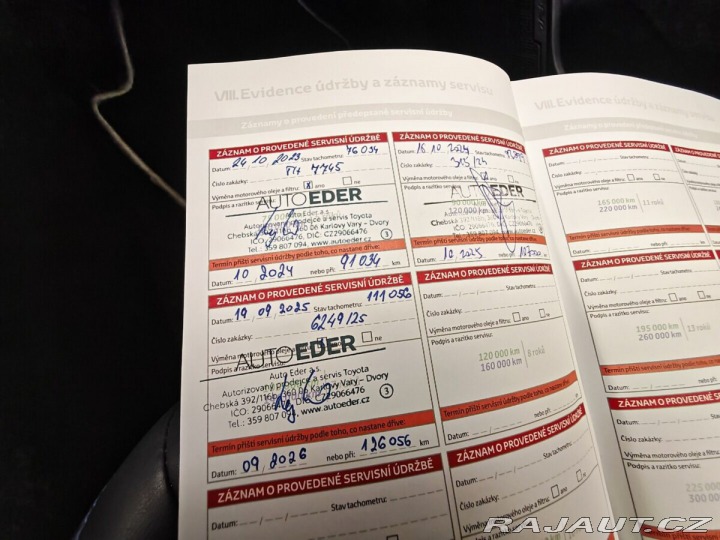 VIII. Evidence údržby a záznamy servisu
Záznamy o provedení předepsané servisní údržby
ZÁZNAM O PROVEDENÉ SERVISNÍ ÚDRŽBĚ
Datum: 24.10.2023 Stav tachometru: 76 034
Číslo zakázky: 7745
Výměna motorového oleje a filtru: X ano ne
Podpis a razítko servisu:
AUTO EDER
Auto Eder a.s.
Autorizovaný prodejce a servis Toyota
Chebská 360 06 Karlovy Vary - Dvory
IČO: 29066476, DIČ: CZ29066476
Tel.: 359 807 094, www.autoeder.cz 3
Termín příští servisní údržby podle toho, co nastane dříve:
Datum: 10.2024 nebo při: 91 034 km
ZÁZNAM O PROVEDENÉ SERVISNÍ ÚDRŽBĚ
Datum: 16.10.2024 Stav tachometru:
Číslo zakázky:
Výměna motorového oleje a filtru: ano ne
Podpis a razítko servisu:
AUTO EDER
120 000 km
Auto Eder a.s.
Autorizovaný prodejce a servis Toyota
Karlovy Vary - Dvory
IČO: 29066476, DIČ: CZ29066476
www.autoeder.cz
Termín příští servisní údržby podle toho, co nastane dříve:
Datum: 10.2025 nebo při: km
ZÁZNAM O PROVEDENÉ SERVISNÍ ÚDRŽBĚ
Datum: 19.09.2025 Stav tachometru: 111 056
Číslo zakázky: 6249/25
Výměna ne
Podpis a razítko servisu:
AUTO EDER
Auto Eder a.s.
Autorizovaný prodejce a servis Toyota
Chebská 392/116b, 360 06 Karlovy Vary - Dvory
www.autoeder.cz 3
Termín příští servisní údržby podle toho, co nastane dříve:
Datum: 09.2026 nebo při: 126 056 km
ZÁZNAM O PROVEDENÉ SERVISNÍ ÚDRŽBĚ
Datum: Stav tachometru:
Číslo zakázky:
Výměna motorového oleje a filtru: ano ne
Podpis a razítko servisu:
120 000 km
160 000 km
8 roků
Termín příští servisní údržby podle toho, co nastane dříve:
Datum: nebo při: km
ZÁZNAM O PROVEDENÉ SERVISNÍ ÚDRŽBĚ
Datum: Stav tachometru:
Číslo zakázky:
ZÁZNAM O PROVEDENÉ SERVISNÍ ÚDRŽBĚ
Datum:
Číslo zakázky:
Výměna motorového oleje a filtru:
Podpis a razítko servisu:
VIII. Evidence údržby a záznamy
Záznamy o provedení
ZÁZNAM O PROVEDENÉ SERVISNÍ ÚDRŽBĚ
Datum: Stav tachometru:
Číslo zakázky:
Výměna motorového oleje a filtru: ano ne
Podpis a razítko servisu:
165 000 km
220 000 km
11 roků
Termín příští servisní údržby podle toho, co nastane dříve:
Datum: nebo při: km
ZÁZNAM O PROVEDENÉ SERVISNÍ ÚDRŽBĚ
Datum: Stav tachometru:
Číslo zakázky:
Výměna motorového oleje a filtru: ano ne
Podpis a razítko servisu:
195 000 km
260 000 km
13 roků
Termín příští servisní údržby podle toho, co nastane dříve:
Datum: nebo při:
ZÁZNAM O PROVEDENÉ SERVISNÍ ÚDRŽBĚ
Datum: Stav tachometru:
Číslo zakázky:
Výměna motorového oleje a filtru:
Podpis a razítko servisu:
225 000
300 000
RAJAUT.CZ